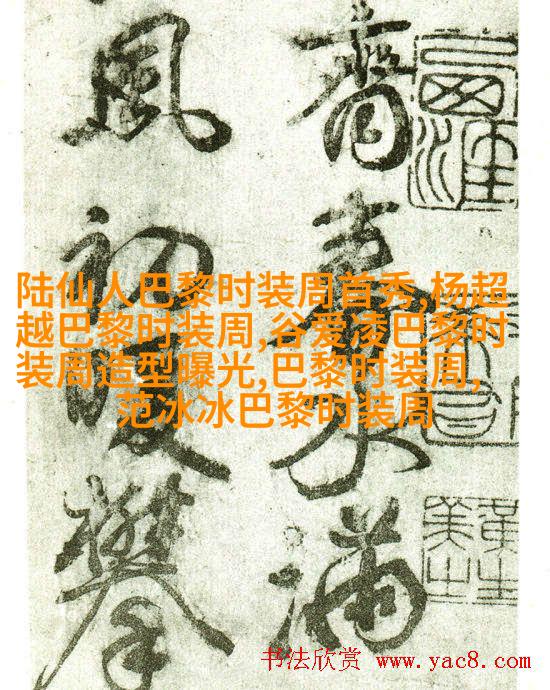 齋春水滿
風初暖攀
陆仙人巴黎时装周首秀,杨超
越巴黎时装周,谷爱凌巴黎时
装周造型曝光,巴黎时装周,
范冰冰巴黎时装周
书法欣赏 www.yac8.com